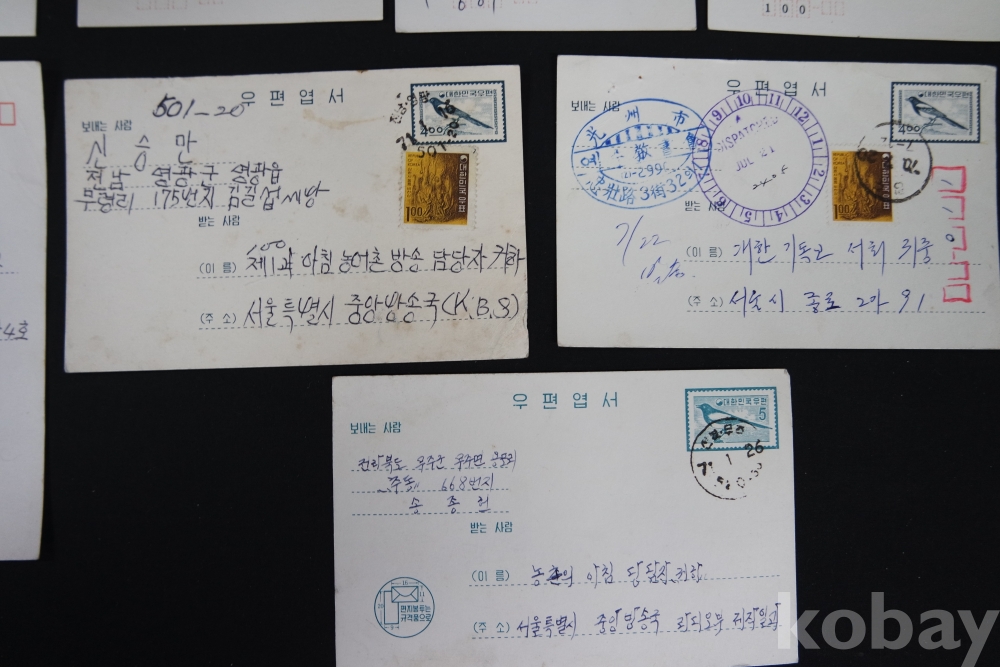 100
우편엽서
501-20
보내는 사람
신승만
전남 영광군 영광읍
무령리 175번지 김길섭씨방
받는 사람
(이 름) 제1과 아침 농어촌 방송 담당자 귀하
(주 소) 서울특별시 중앙방송국 (K.B.S)
대한민국우편
4.00
대한민국우표
1.00
71.1.
우편엽서
보내는 사람
光州市
忠壯路3街32
DISPATCHED
JUL 21
1 2 3 4 5 6 7 8 9 10 11 12
받는 사람
7/22
(이 름) 대한 기독교 서회
(주 소) 서울시 종로 2가 91
대한민국우편
4.00
대한민국우표
1.00
우편엽서
보내는 사람
전라북도 무주군 무주면
668번지
송종헌
받는 사람
(이 름) 농촌의 아침 담당자 귀하
(주 소) 서울특별시 중앙방송국 라디오부 제작일과
대한민국우편
5
71.1.26
편지봉투는
규격품으로
kobay